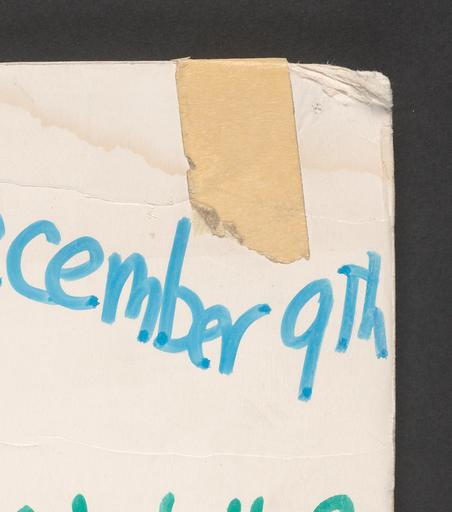 ecember 9th